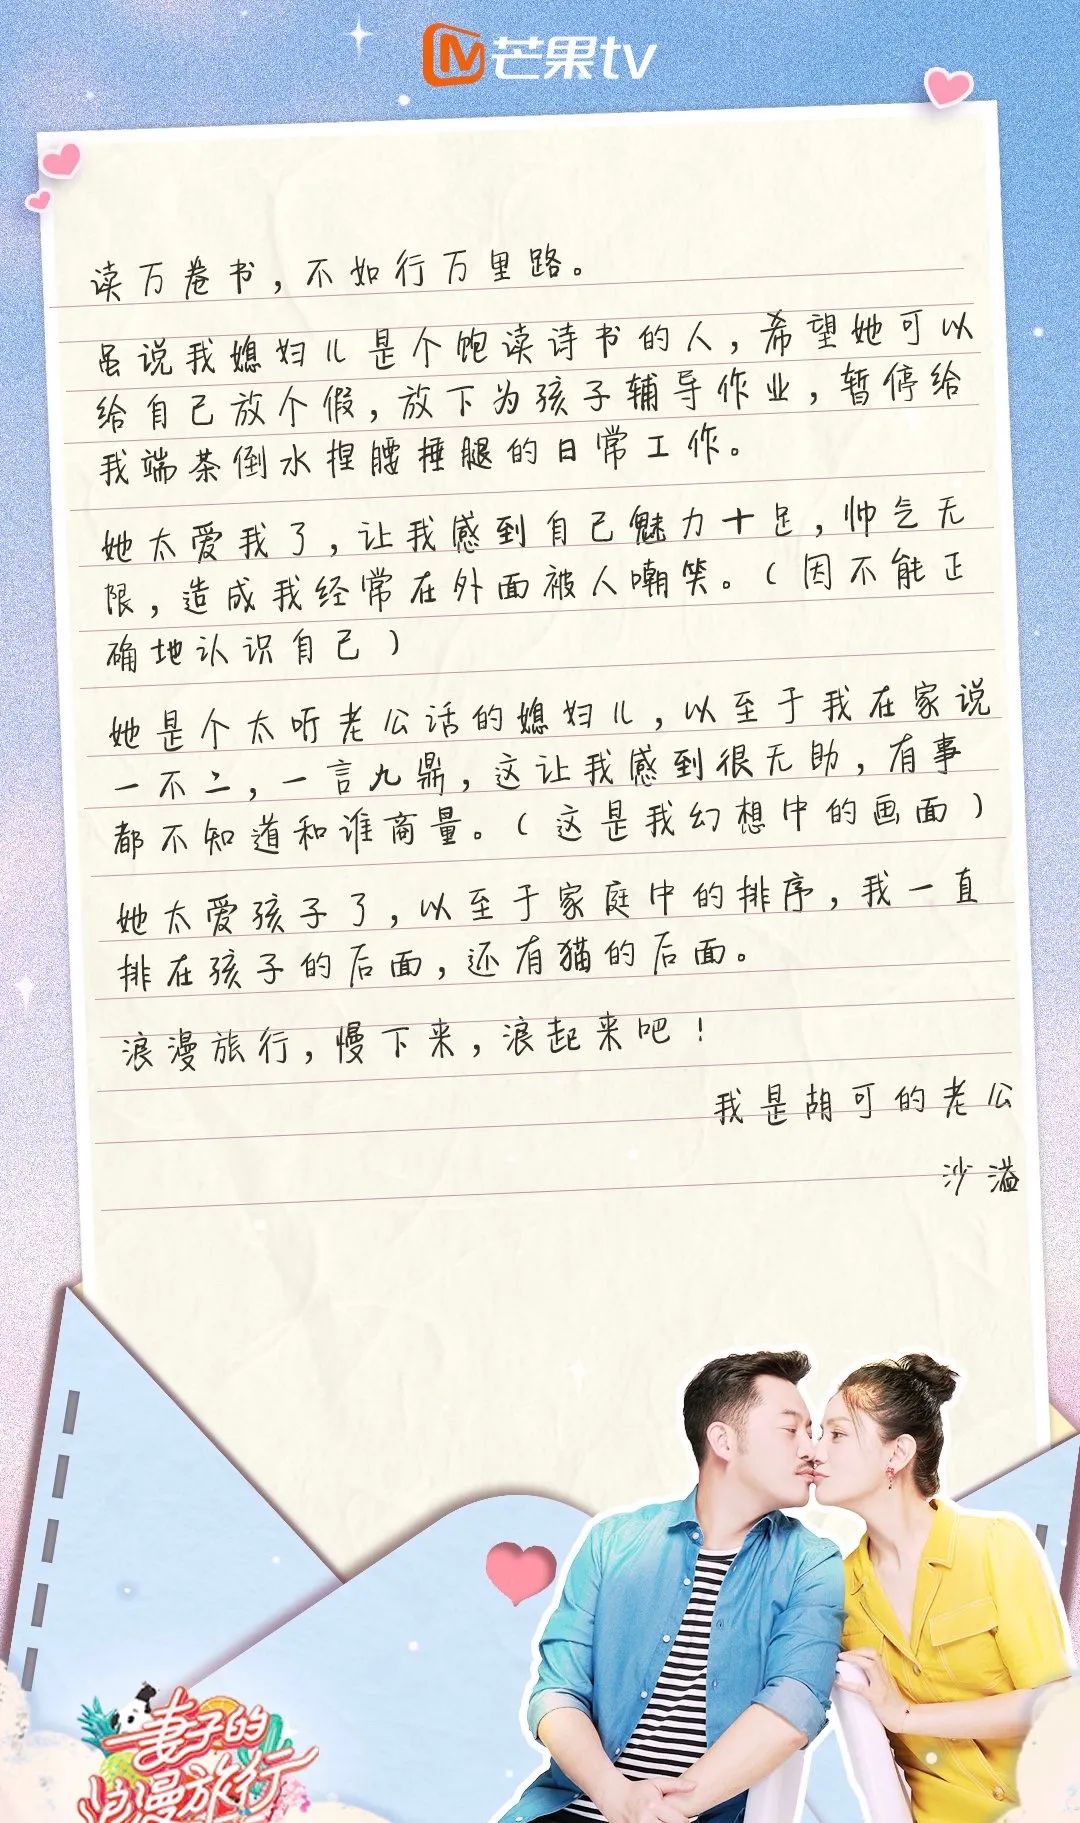 芒果tv
读万卷书，不如行万里路。
虽说我媳妇儿是个饱读诗书的人，希望她可以
给自己放个假，放下为孩子辅导作业，暂停给
我端茶倒水捏腰捶腿的日常工作。
她太爱我了，让我感到自己魅力十足，帅气无
限，造成我经常在外面被人嘲笑。（因不能正
确地认识自己）
她是个太听老公话的媳妇儿，以至于我在家说
一不二，一言九鼎，这让我感到很无助，有事
都不知道和谁商量。（这是我幻想中的画面）
她太爱孩子了，以至于家庭中的排序，我一直
排在孩子的后面，还有猫的后面。
浪漫旅行，慢下来，浪起来吧！
我是胡可的老公
沙溢
妻子的
浪漫旅行